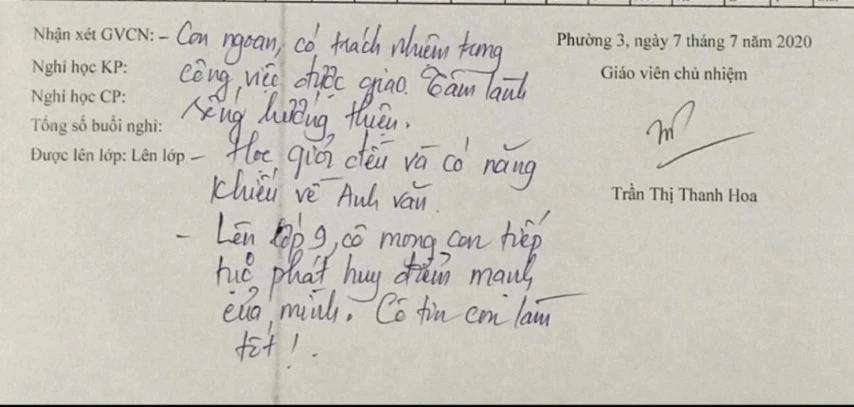 Nhận xét GVCN: - Con ngoan, có trách nhiệm trong
Phường 3, ngày 7 tháng 7 năm 2020
Nghỉ học KP: công việc được giao. Tâm lành
Giáo viên chủ nhiệm
Nghỉ học CP: sống hướng thiện.
Tổng số buổi nghỉ:
Được lên lớp: Lên lớp - Học giỏi đều và có năng
khiếu về Anh văn.
Trần Thị Thanh Hoa
- Lên lớp 9, cô mong con tiếp
tục phát huy điểm mạnh
của mình. Cô tin con làm
tốt!.